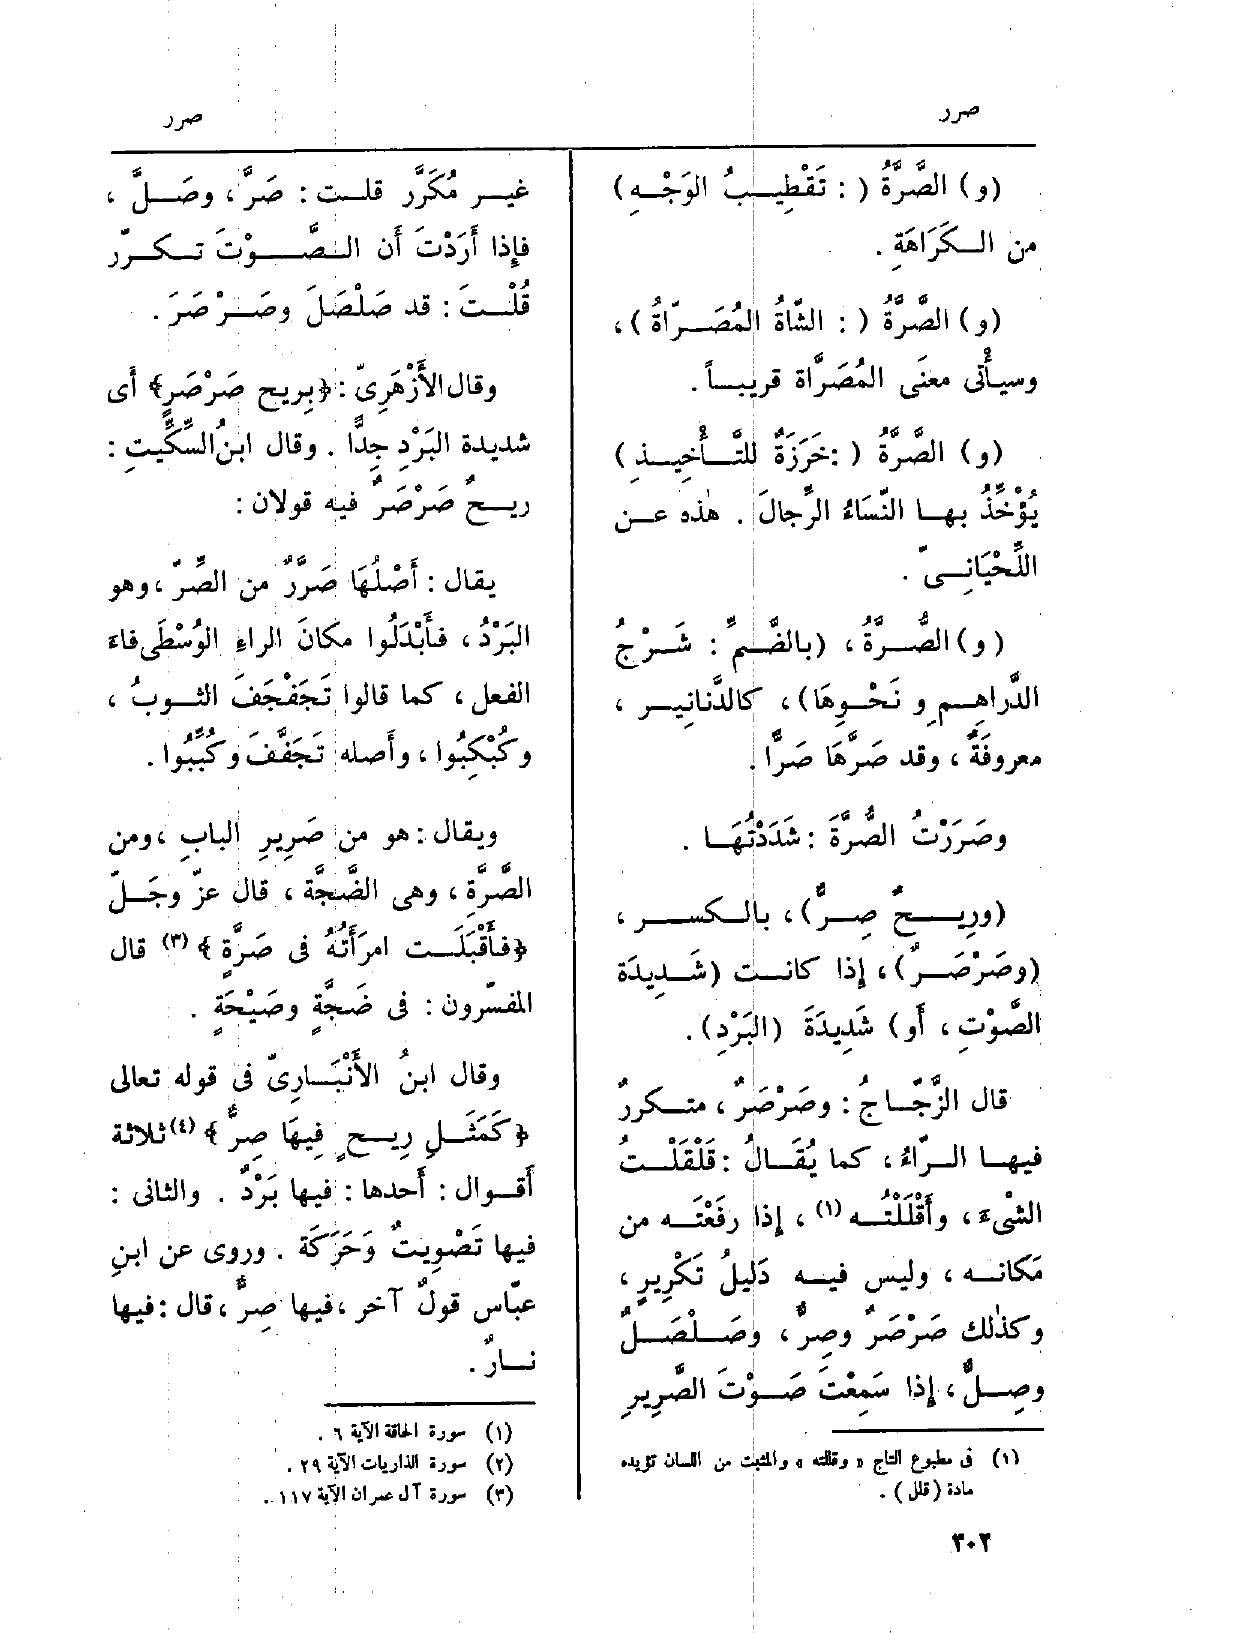 صرر
صرر
(و) الصَّرَّةُ ( : تَقْطِيبُ الوَجْهِ)
من الكَرَاهَةِ .
(و) الصَّرَّةُ ( : الشَّاةُ المُصَرّاةُ) ،
وسيأْتى معنَى المُصَرَّاة قريباً .
(و) الصَّرَّةُ ( :خَرَزَةٌ للتَّأْخِيذِ)
يُؤْخِّذُ بها النِّسَاءُ الرِّجالَ . هٰذه عن
اللِّحْيَانِىّ .
(و) الصُّرَّةُ ، (بالضَّمِّ : شَرْجُ
الدَّراهِمِ و نَحْوِهَا) ، كالدَّنانِيرِ ،
معروفَةٌ ، وقد صَرَّهَا صَرًّا .
وصَرَرْتُ الصُّرَّةَ :شَدَدْتُهَا .
(ورِيحٌ صِرٌّ) ، بالكسر ،
(وصَرْصَرٌ) ، إذا كانت (شَدِيدَةَ
الصَّوْتِ ، أَو) شَدِيدَةَ (البَرْدِ) .
قال الزَّجّاجُ : وصَرْصَرٌ ، متكررٌ
فيها الرّاءُ ، كما يُقَالُ :قَلْقَلْتُ
الشْىءَ ، وأَقْلَلْتُه (١) ، إذا رفَعْتَه من
مَكانه ، وليس فيه دَلِيلُ تَكْرِيرٍ ،
وكذٰلك صَرْصَرٌ وصِرٌّ ، وصَلْصَلٌ
وصِلٌّ ، إذا سَمِعْتَ صَوْتَ الصَّرِيرِ
(١) فى مطبوع التاج « وقللته » والمثبت من اللسان تؤيده
مادة (قلل) .
غير مُكَرَّر قلت : صَرَّ ، وصَلَّ ،
فإذا أَرَدْتَ أن الصَّوْتَ تكرّر
قُلْتَ : قد صَلْصَلَ وصَرْصَرَ .
وقال الأَزْهَرِىّ :﴿بِرِيحٍ صَرْصَرٍ﴾ أى
شديدة البَرْدِ جِدًّا . وقال ابنُ السِّكِّيتِ :
ريحٌ صَرْصَرٌ فيه قولان :
يقال : أَصْلُهَا صَرَّرٌ من الصِّرّ ، وهو
البَرْدُ ، فأَبْدَلُوا مكانَ الراءِ الوُسْطَى فاءَ
الفعل ، كما قالوا تَجَفْجَفَ الثوبُ ،
وكُبْكِبُوا ، وأصله تَجَفَّفَ وكُبِّبُوا .
ويقال : هو من صَرِيرِ البابِ ، ومن
الصَّرَّةِ ، وهى الضَّجَّة ، قال عزّ وجَلّ
﴿فأَقْبَلَت امرَأَتُهُ فى صَرَّةٍ﴾ (٣) قال
المفسّرون : فى ضَجَّةٍ وصَيْحَةٍ .
وقال ابنُ الأَنْبَارِىّ فى قوله تعالى
﴿كَمَثَلِ رِيحٍ فِيهَا صِرٌّ﴾ (٤) ثلاثة
أقوال : أحدها : فيها بَرْدٌ . والثانى :
فيها تَصْوِيتٌ وَحَرَكَة . وروى عن ابنِ
عبّاس قولٌ آخر ، فيها صِرٌّ ، قال : فيها
نارٌ .
(١) سورة الحاقة الآية ٦ .
(٢) سورة الذاريات الآية ٢٩ .
(٣) سورة آل عمران الآية ١١٧ .
٣٠٢